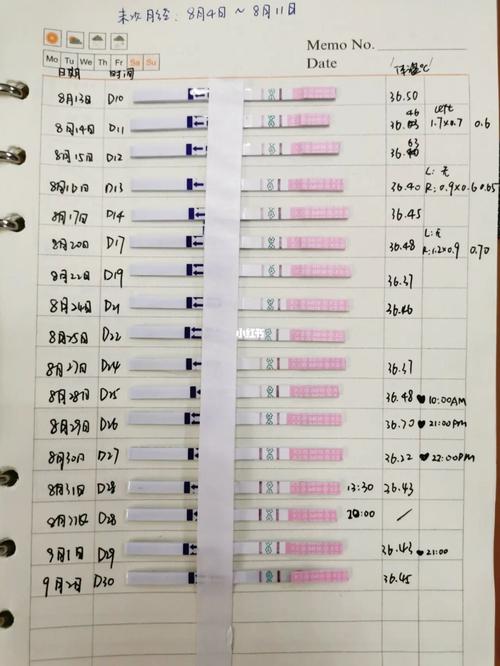 末次月经：8月4日～8月11日
Memo No.
Mo Tu We Th Fr Sa Su
Date
日期 时间 体温℃
8月13日 D10 36.50
8月14日 D11 36. left 1.7×0.7 0.6
8月15日 D12 36.
8月16日 D13 36.40 L:无 R:0.9×0.6 0.65
8月17日 D14 36.45
8月20日 D17 36.48 L:无 R:1.2×0.9 0.70
8月22日 D19 36.37
8月24日 D21 36.46
8月25日 D22
小红书
8月27日 D24 36.37
8月28日 D25 36.48 ♥10:00AM
8月29日 D26 36.70 ♥21:00PM
8月30日 D27 36.22 ♥22:00PM
8月31日 D28 13:30 36.43
8月31日 D28 20:00 /
9月1日 D29 36.43 ♥21:00
9月2日 D30 36.45